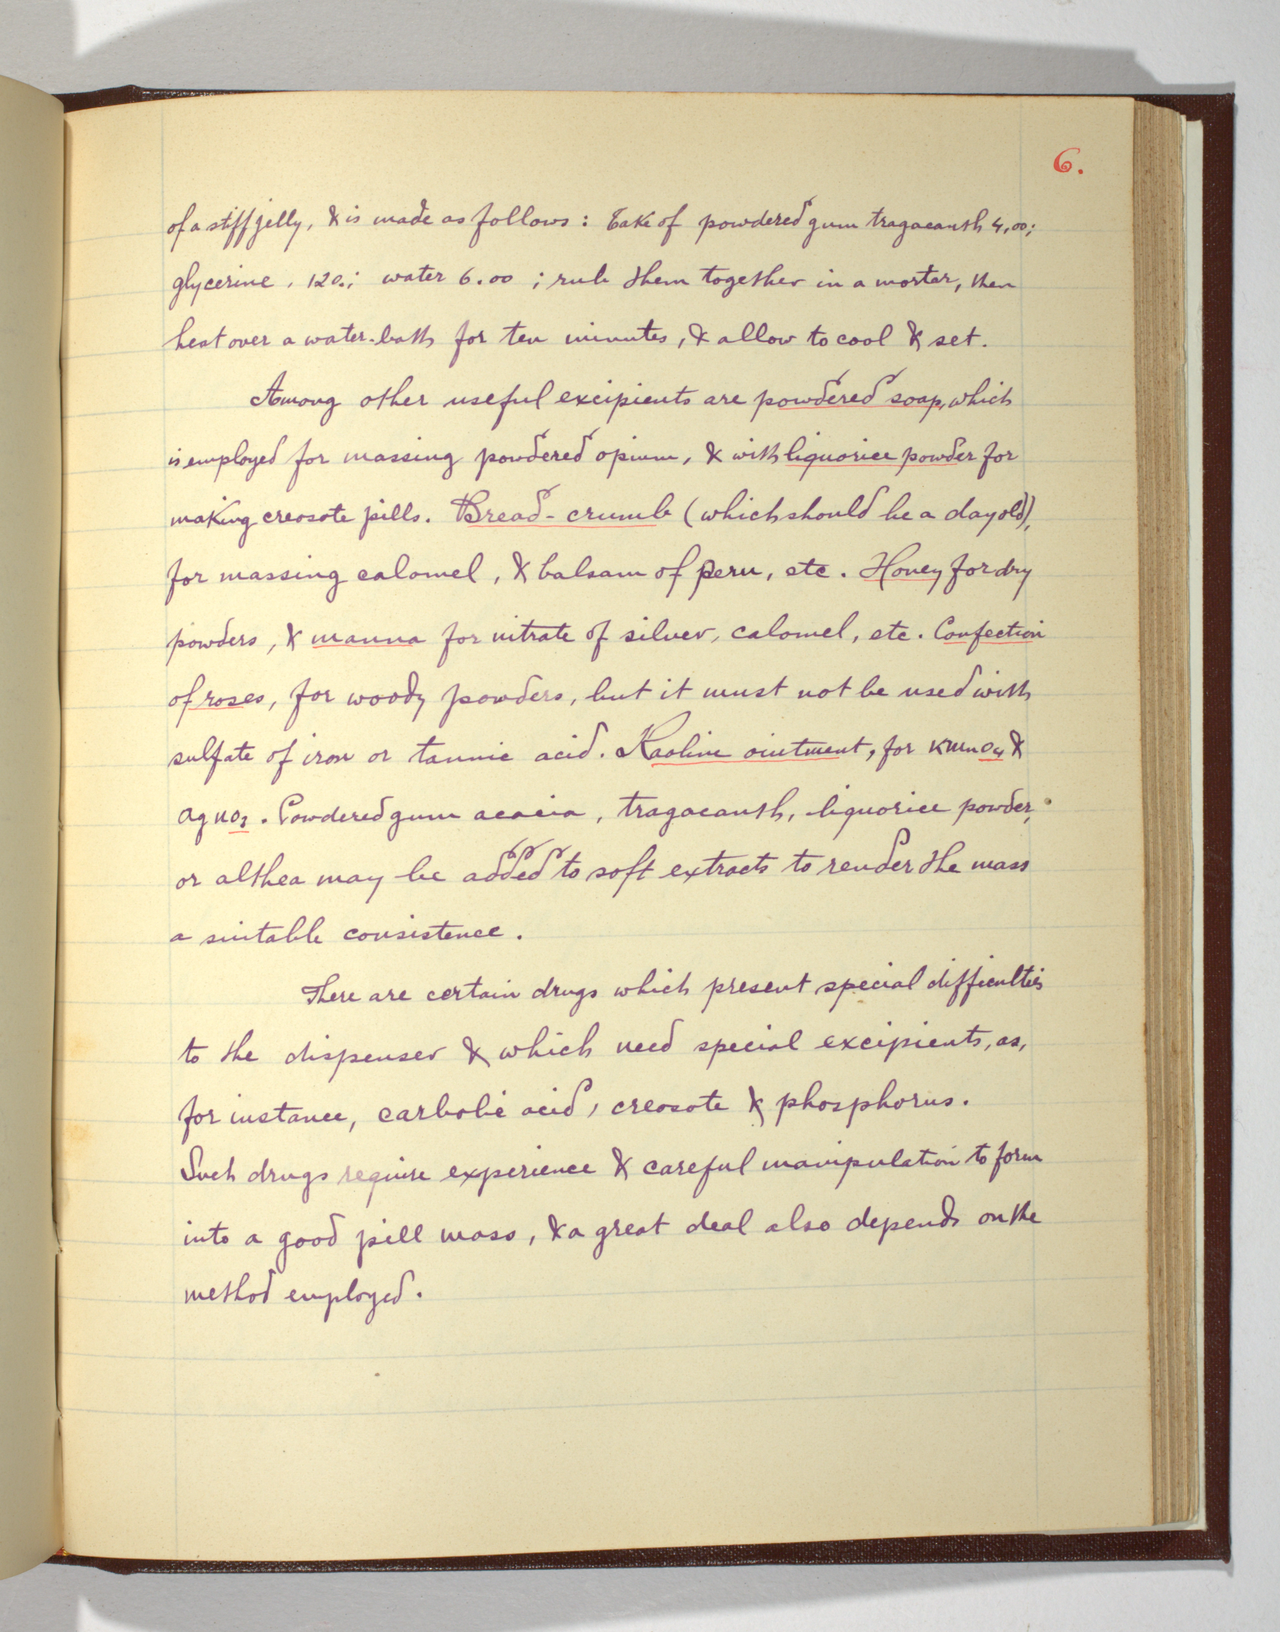 6.
of a stiff jelly, & is made as follows: Take of powdered gum tragacanth 4,00;
glycerine, 120.; water 6.00; rub them together in a mortar, then
heat over a water-bath for ten minutes, & allow to cool & set.
Among other useful excipients are powdered soap, which
is employed for massing powdered opium, & with liquorice powder for
making creosote pills. Bread-crumb (which should be a day old),
for massing calomel, & balsam of peru, etc. Honey for dry
powders, & manna for nitrate of silver, calomel, etc. Confection
of roses, for woody powders, but it must not be used with
sulfate of iron or tannic acid. Kaoline ointment, for KMnO4 &
AgNO3. Powdered gum acacia, tragacanth, liquorice powder,
or althea may be added to soft extracts to render the mass
a suitable consistence.
There are certain drugs which present special difficulties
to the dispenser & which need special excipients, as,
for instance, carbolic acid, creosote & phosphorus.
Such drugs require experience & careful manipulation to form
into a good pill mass, & a great deal also depends on the
method employed.